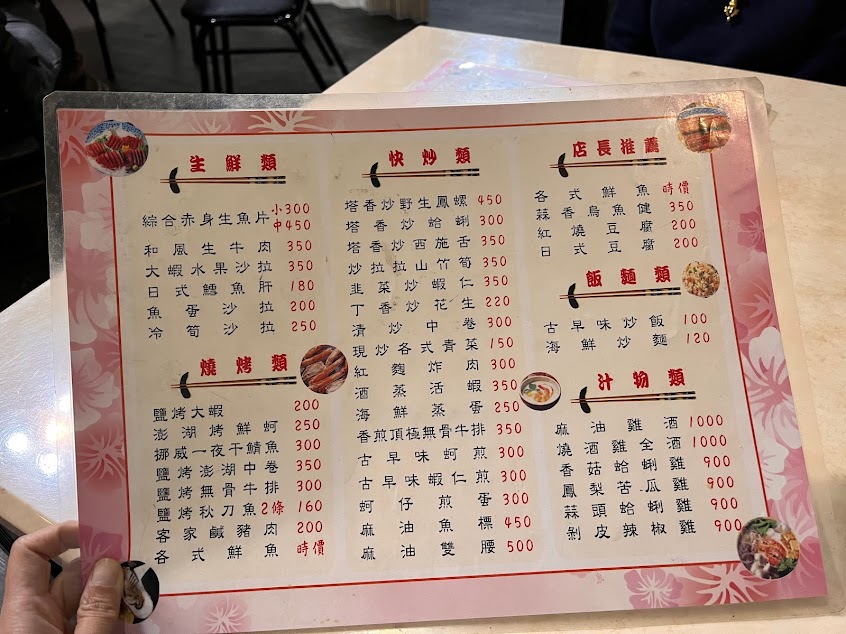 生鮮類
綜合赤身生魚片 小300 中450
和風生牛肉 350
大蝦水果沙拉 350
日式鱈魚肝 180
魚蛋沙拉 200
冷筍沙拉 250
燒烤類
鹽烤大蝦 200
澎湖烤鮮蚵 250
挪威一夜干鯖魚 300
鹽烤澎湖中卷 350
鹽烤無骨牛排 300
鹽烤秋刀魚2條 160
客家鹹豬肉 200
各式鮮魚 時價
快炒類
塔香炒野生鳳螺 450
塔香炒蛤蜊 300
塔香炒西施舌 350
炒拉拉山竹筍 350
韭菜炒蝦仁 350
丁香炒花生 220
清炒中卷 300
現炒各式青菜 150
紅麴炸肉 300
酒蒸活蝦 350
海鮮蒸蛋 250
香煎頂極無骨牛排 350
古早味蚵煎 300
古早味蝦仁煎 300
蚵仔煎蛋 300
麻油魚標 450
麻油雙腰 500
店長推薦
各式鮮魚 時價
蒜香烏魚健 350
紅燒豆腐 200
日式豆腐 200
飯麵類
古早味炒飯 100
海鮮炒麵 120
汁物類
麻油雞酒 1000
燒酒雞全酒 1000
香菇蛤蜊雞 900
鳳梨苦瓜雞 900
蒜頭蛤蜊雞 900
剝皮辣椒雞 900